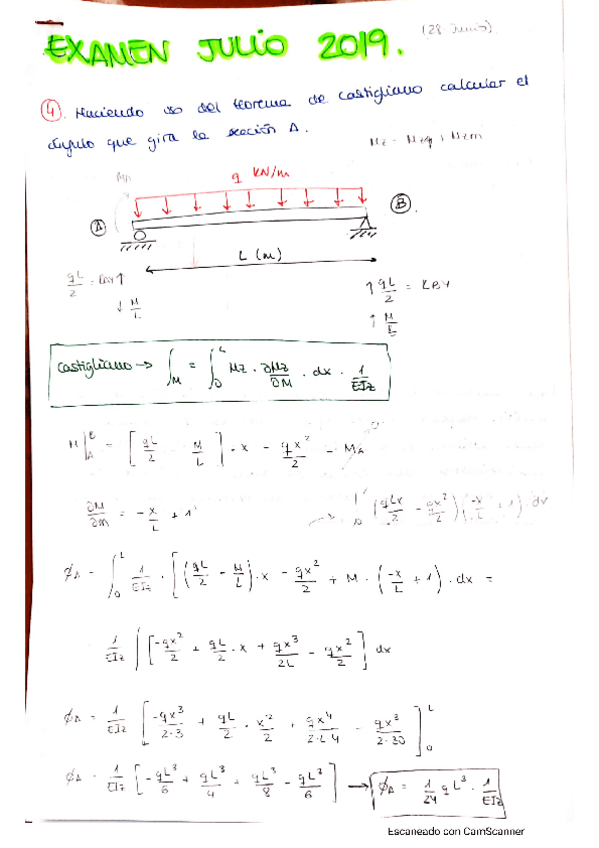 EXAMEN JULIO 2019. (28 Junio)
④. Haciendo uso del teorema de Castigliano calcular el
ángulo que gira la sección A.
Mz = Mzq + Mzm
q KN/m
A
B
L (m)
qL/2 = RAY ↑
↓ M/L
↑ qL/2 = RBY
↑ M/L
Castigliano → ∫M = ∫₀ᴸ Mz · ∂Mz/∂M · dx · 1/EIz
M|ᴮ_A = [qL/2 M/L] · x - qx²/2 - MA
∂M/∂m = -x/L + 1
∫₀ᴸ (qLx/2 - qx²/2)(-x/L + 1) · dx
ϕA = ∫₀ᴸ 1/EIz · [(qL/2 - M/L) · x - qx²/2 + M · (-x/L + 1) · dx =
1/EIz ∫ [-qx²/2 + qL/2 · x + qx³/2L - qx²/2] dx
ϕA = 1/EIz [-qx³/2·3 + qL/2 · x²/2 + qx⁴/2·L·4 - qx³/2·3]₀ᴸ
ϕA = 1/EIz [-qL³/6 + qL³/4 + qL³/8 - qL³/6] → ϕA = 1/24 qL³ · 1/EIz
Escaneado con CamScanner